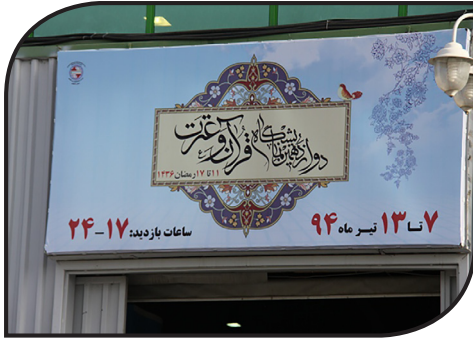 دوازدهمین نمایشگاه قرآن و عترت
۱۱ تا ۱۷ رمضان ۱۴۳۶
۷ تا ۱۳ تیر ماه ۹۴
ساعات بازدید: ۱۷-۲۴